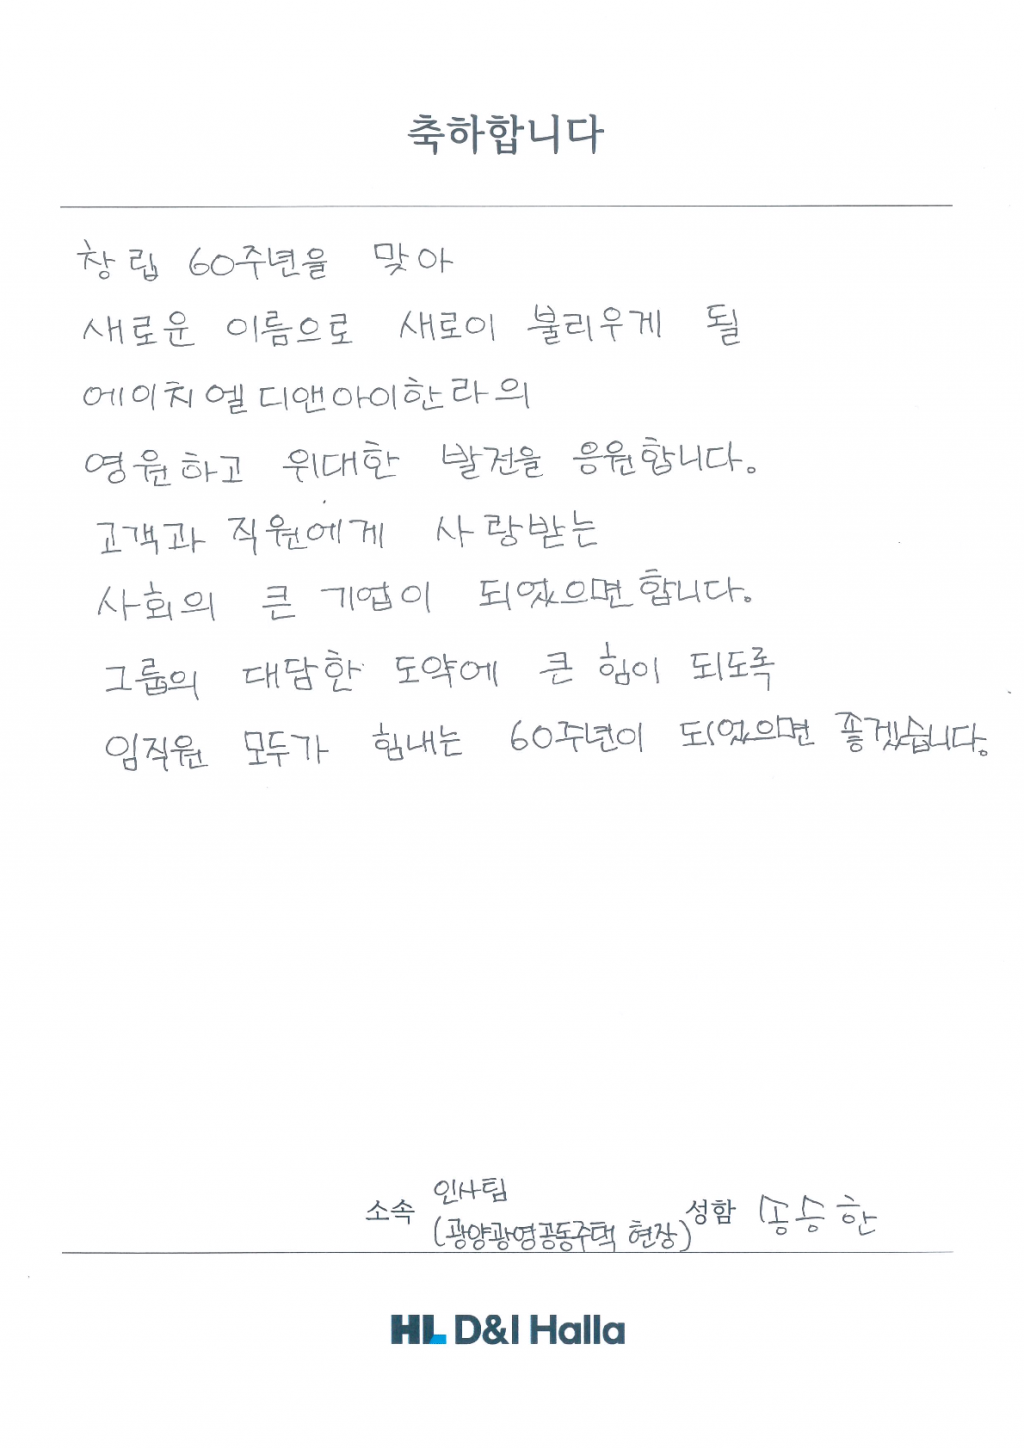 축하합니다
창립 60주년을 맞아
새로운 이름으로 새로이 불리우게 될
에이치엘디앤아이한라의
영원하고 위대한 발전을 응원합니다.
고객과 직원에게 사랑받는
사회의 큰 기업이 되었으면합니다.
그룹의 대담한 도약에 큰 힘이 되도록
임직원 모두가 힘내는 60주년이 되었으면 좋겠습니다.
소속 인사팀
(광양광영공동주택 현장) 성함 송승한
HL D&I Halla